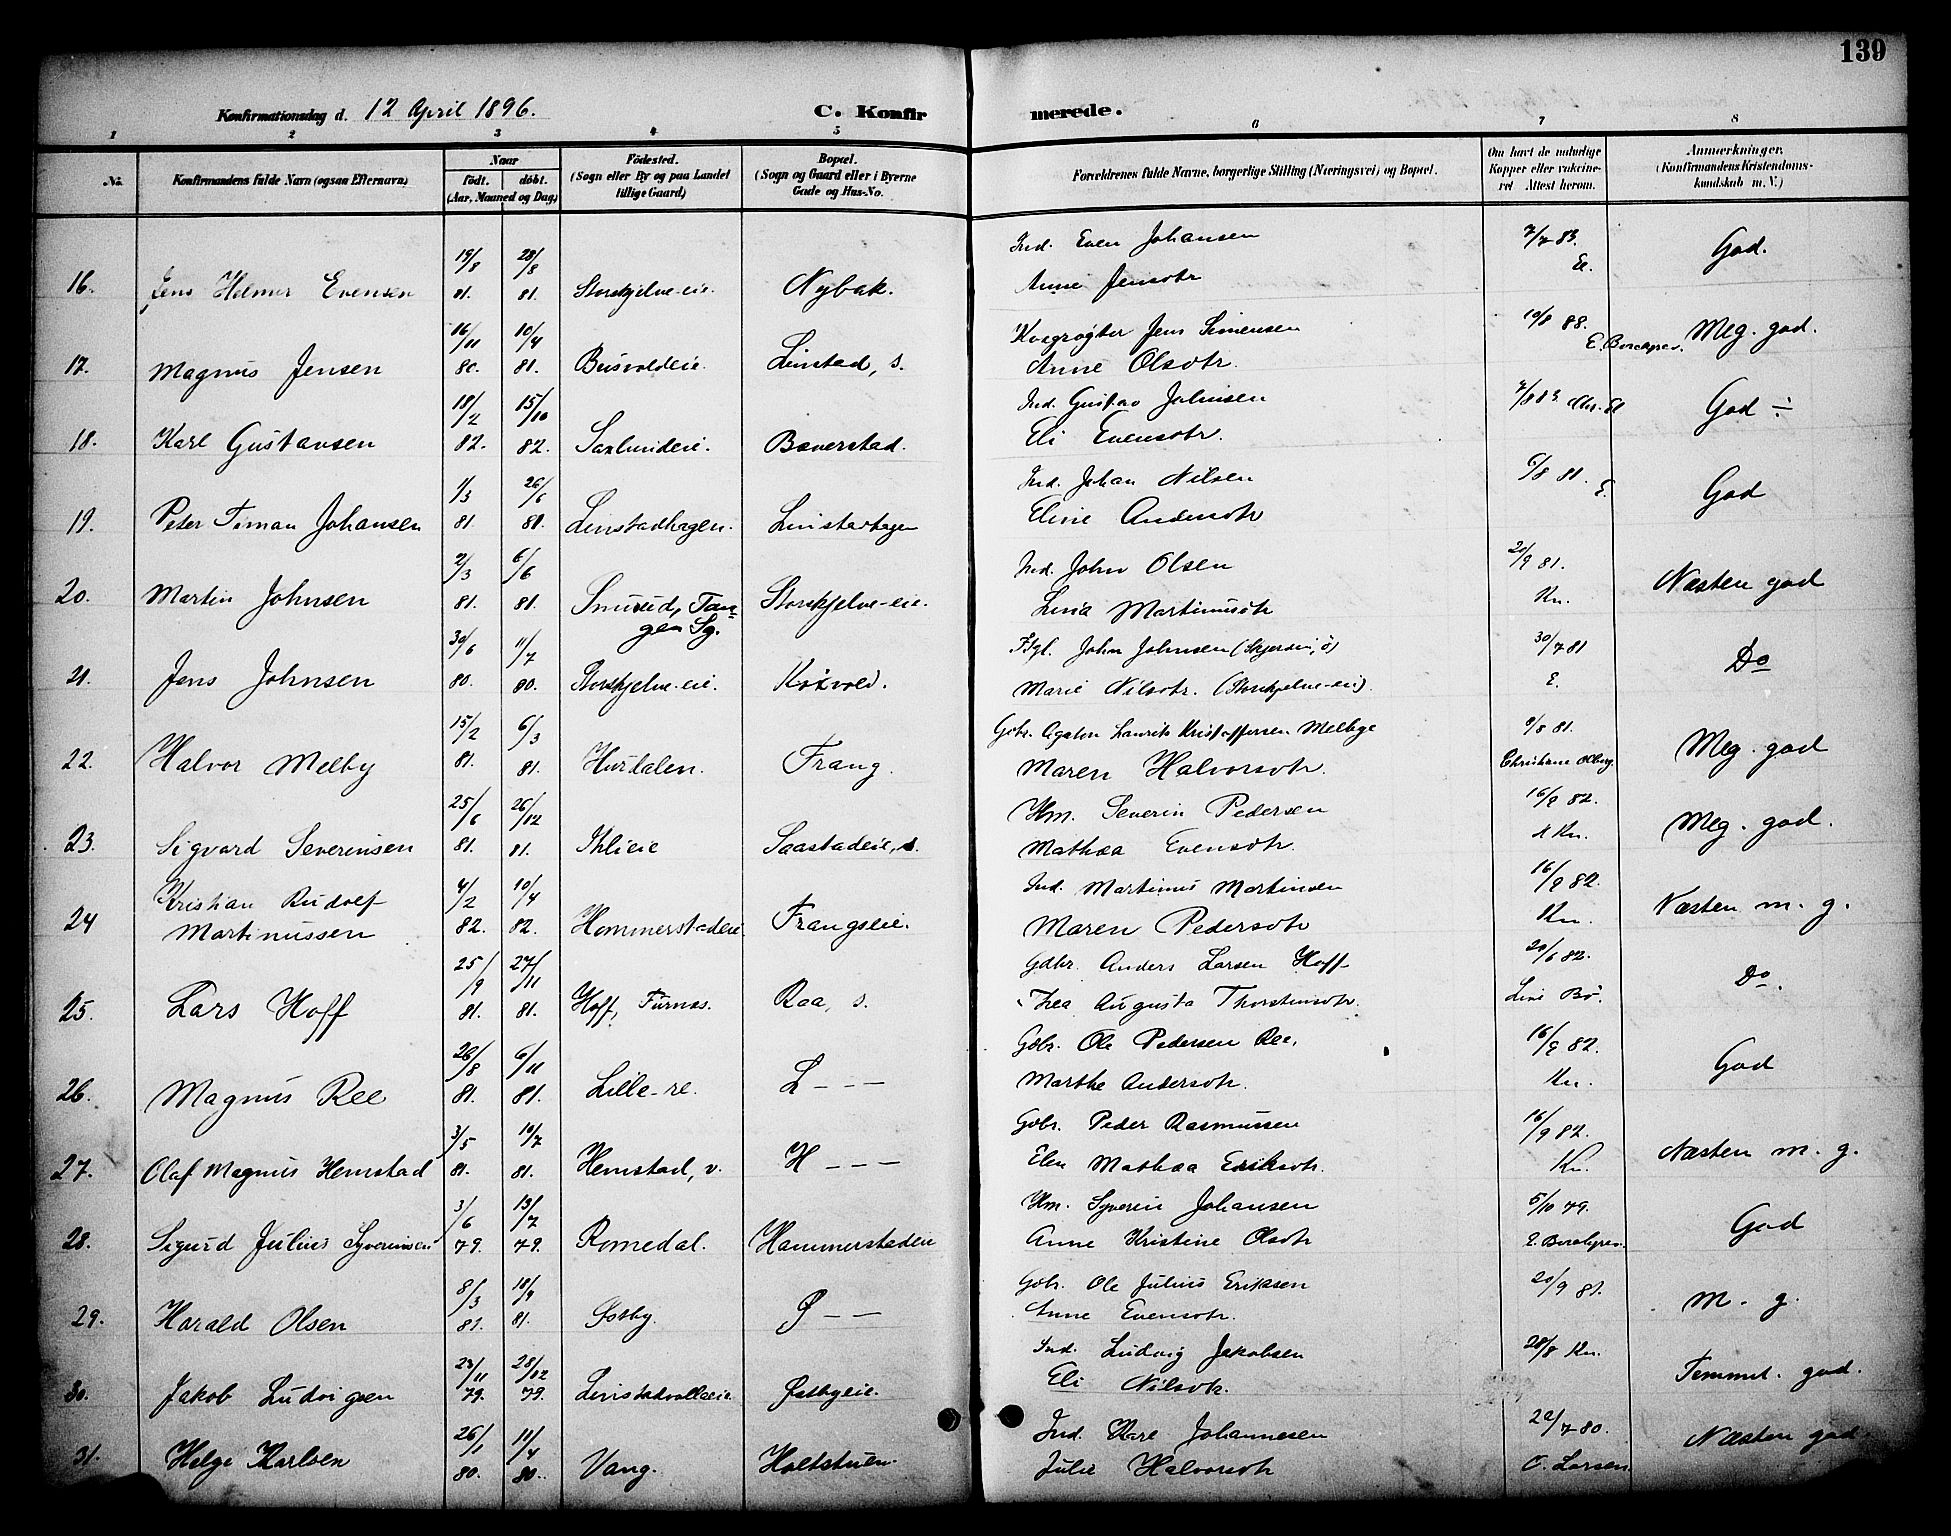 139
Konfirmationsdag d. 12 April 1896. C. Konfirmerede.
1 2 3 4 5 6 7 8
No. Konfirmandens fulde Navn (ogsaa Efternavn) Naar født. døbt. (Aar, Maaned og Dag) Födested. (Sogn eller By og paa Landet tillige Gaard) Bopæl. (Sogn og Gaard eller i Byerne Gade og Hus-No. Forældrenes fulde Navne, borgerlige Stilling (Næringsvei) og Bopæl. Om havt de naturlige Kopper eller vaccineret Attest herom. Anmærkninger. (Konfirmandens Kristendomskundskab m. V.)
19/8 28/8 Ind. Even Johansen 7/7 83. God.
16. Jens Helmer Evensen 81. 81. Storskjelve-eie. Nybak. Anne Jensdtr E.
16/11 10/4 Jens Simensen 10/8 88. Meg. god.
17. Magnus Jensen 80. 81. Busvoldeie. Linstad, s. Anne Olsdtr. E.
18/2 15/10 Ind. Gustav Johnsen 7/8 83. God ÷
18. Karl Gustavsen 82. 82. Saxlundeie. Baverstad. Eli Evensdtr.
1/3 26/6 Ind. Johan Nilsen 6/8 81. God
19. Peter Timan Johansen 81. 81. Linstadhagen. Linstadhagen Eline Andersdtr E.
2/3 6/6 Ind. John Olsen 20/9 81. Næsten god
20. Martin Johnsen 81. 81. Smurud, Tangen Sg. Storskjelve-eie. Lina Martinusdtr Kn.
30/6 11/7 John Johnsen 30/7 81 Do
21. Jens Johnsen 80. 80. Storskjelve-eie. Koxvold. Marie Nilsdtr. (Storskjelve-eie). E.
15/2 6/3 Gbr. Agaton Laurits Kristoffersen Melbye 9/8 81. Meg. god
22. Halvor Melby 81. 81. Hurdalen. Frang. Maren Halvorsdtr. Christiane
25/6 26/12 Hm. Severin Pedersen 16/9 82. Meg. god.
23. Sigvard Severinsen 81. 81. Ihlieie Saastadeie, s. Mathea Evensdtr. Kn.
4/2 10/4 Ind. Martinus Martinsen 16/9 82. Næsten m. g.
24 Kristian Rudolf Martinussen 82. 82. Hommerstadeie Frangseie. Maren Pedersdtr Kn.
25/9 27/11 Gdbr. Anders Larsen Hoff 20/6 82. Do.
25. Lars Hoff 81. 81. Hoff, Furnes. Raa, s. Thea Augusta Thorstensdtr. Line Bö.
26/8 6/11 Gdbr. Ole Pedersen Ree. 16/9 82. God
26. Magnus Ree 81. 81. Lille-re. L - - - Marthe Andersdtr. Kn.
3/5 10/7 Gdbr. Peder Rasmussen 16/9 82. Næsten m. g.
27. Olaf Magnus Hemstad 81. 81. Hemstad, v. H - - - Elen Mathea Eriksdtr. Kn.
3/6 13/7 Hm. Syverin Johansen 5/10 79. God
28. Sigurd Julius Syverinsen 79. 79. Romedal. Hammerstadeie Anne Kristine Olsdtr E.
8/3 18/4 Gdbr. Ole Julius Eriksen 20/9 81. m. g.
29. Harald Olsen 81. 81. Østby. Ø - - Anne Evensdtr.
23/11 28/12 Ind. Ludvig Jakobsen 28/8 Kn. Temmel. god.
30. Jakob Ludvigsen 79. 79. Linstadvolleie Østbyeie. Eli Nilsdtr.
26/1 11/4 Ind. Karl Johannesen 22/7 80. Næsten god.
31. Helge Karlsen 80. 80. Vang. Holtstuen Julie Halvorsdtr O. Larsen.